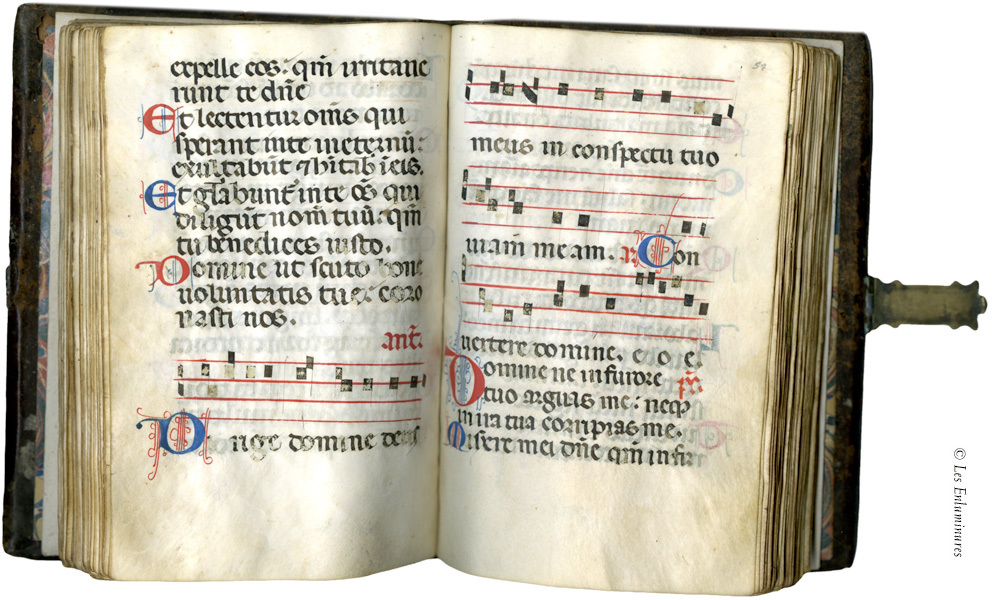 expelle eos: qm̄ irritaue
runt te dn̄e
Et lectentur om̄s qui
sperant inte ineternū:
exultabūt ⁊ hītab̄ ī eis.
Et gl̄abunt̄ inte oēs qui
diligūt nom̄ tuū: qm̄
tu benedices iusto.
Domine ut scuto bone
uoluntatis tue: coro
nasti nos.
ant̄.
Dirige domine deus
51
meus in conspectu tuo
uiam meam. Con
uertere domine. e o e
Domine ne in furore ps̄.
tuo arguas me: neqꝫ
in ira tua corripias me.
Misere mei dn̄e qm̄ infir
© Les Enluminures